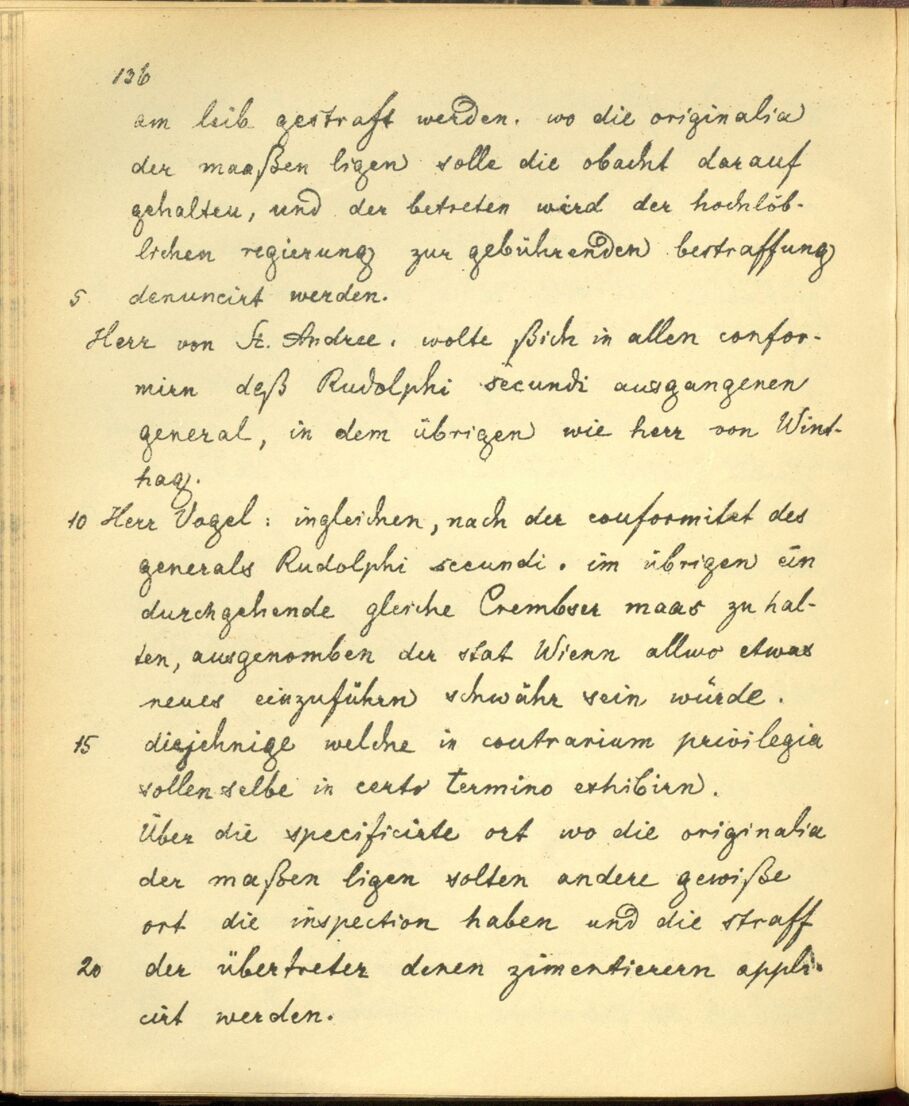 136
am leib gestraft werden. wo die originalia
der maaßen ligen solle die obacht darauf
gehalten, und der betreten wird der hochlöb-
lichen regierung zur gebührenden bestraffung
5 denuncirt werden.
Herr von St. Andree. wolte ßich in allen confor-
mirn deß Rudolphi secundi ausgangenen
general, in dem übrigen wie herr von Wint-
hag.
10 Herr Vogel: ingleichen, nach der conformitet des
generals Rudolphi secundi. im übrigen ein
durchgehende gleiche Crembser maas zu hal-
ten, ausgenomben der stat Wienn allwo etwas
neues einzuführn schwähr sein würde.
15 diejehnige welche in contrarium privilegia
sollen selbe in certo termino exhibirn.
Über die specificirte ort wo die originalia
der maßen ligen solten andere gewiße
ort die inspection haben und die straff
20 der übertreter denen zimentierern appli-
cirt werden.